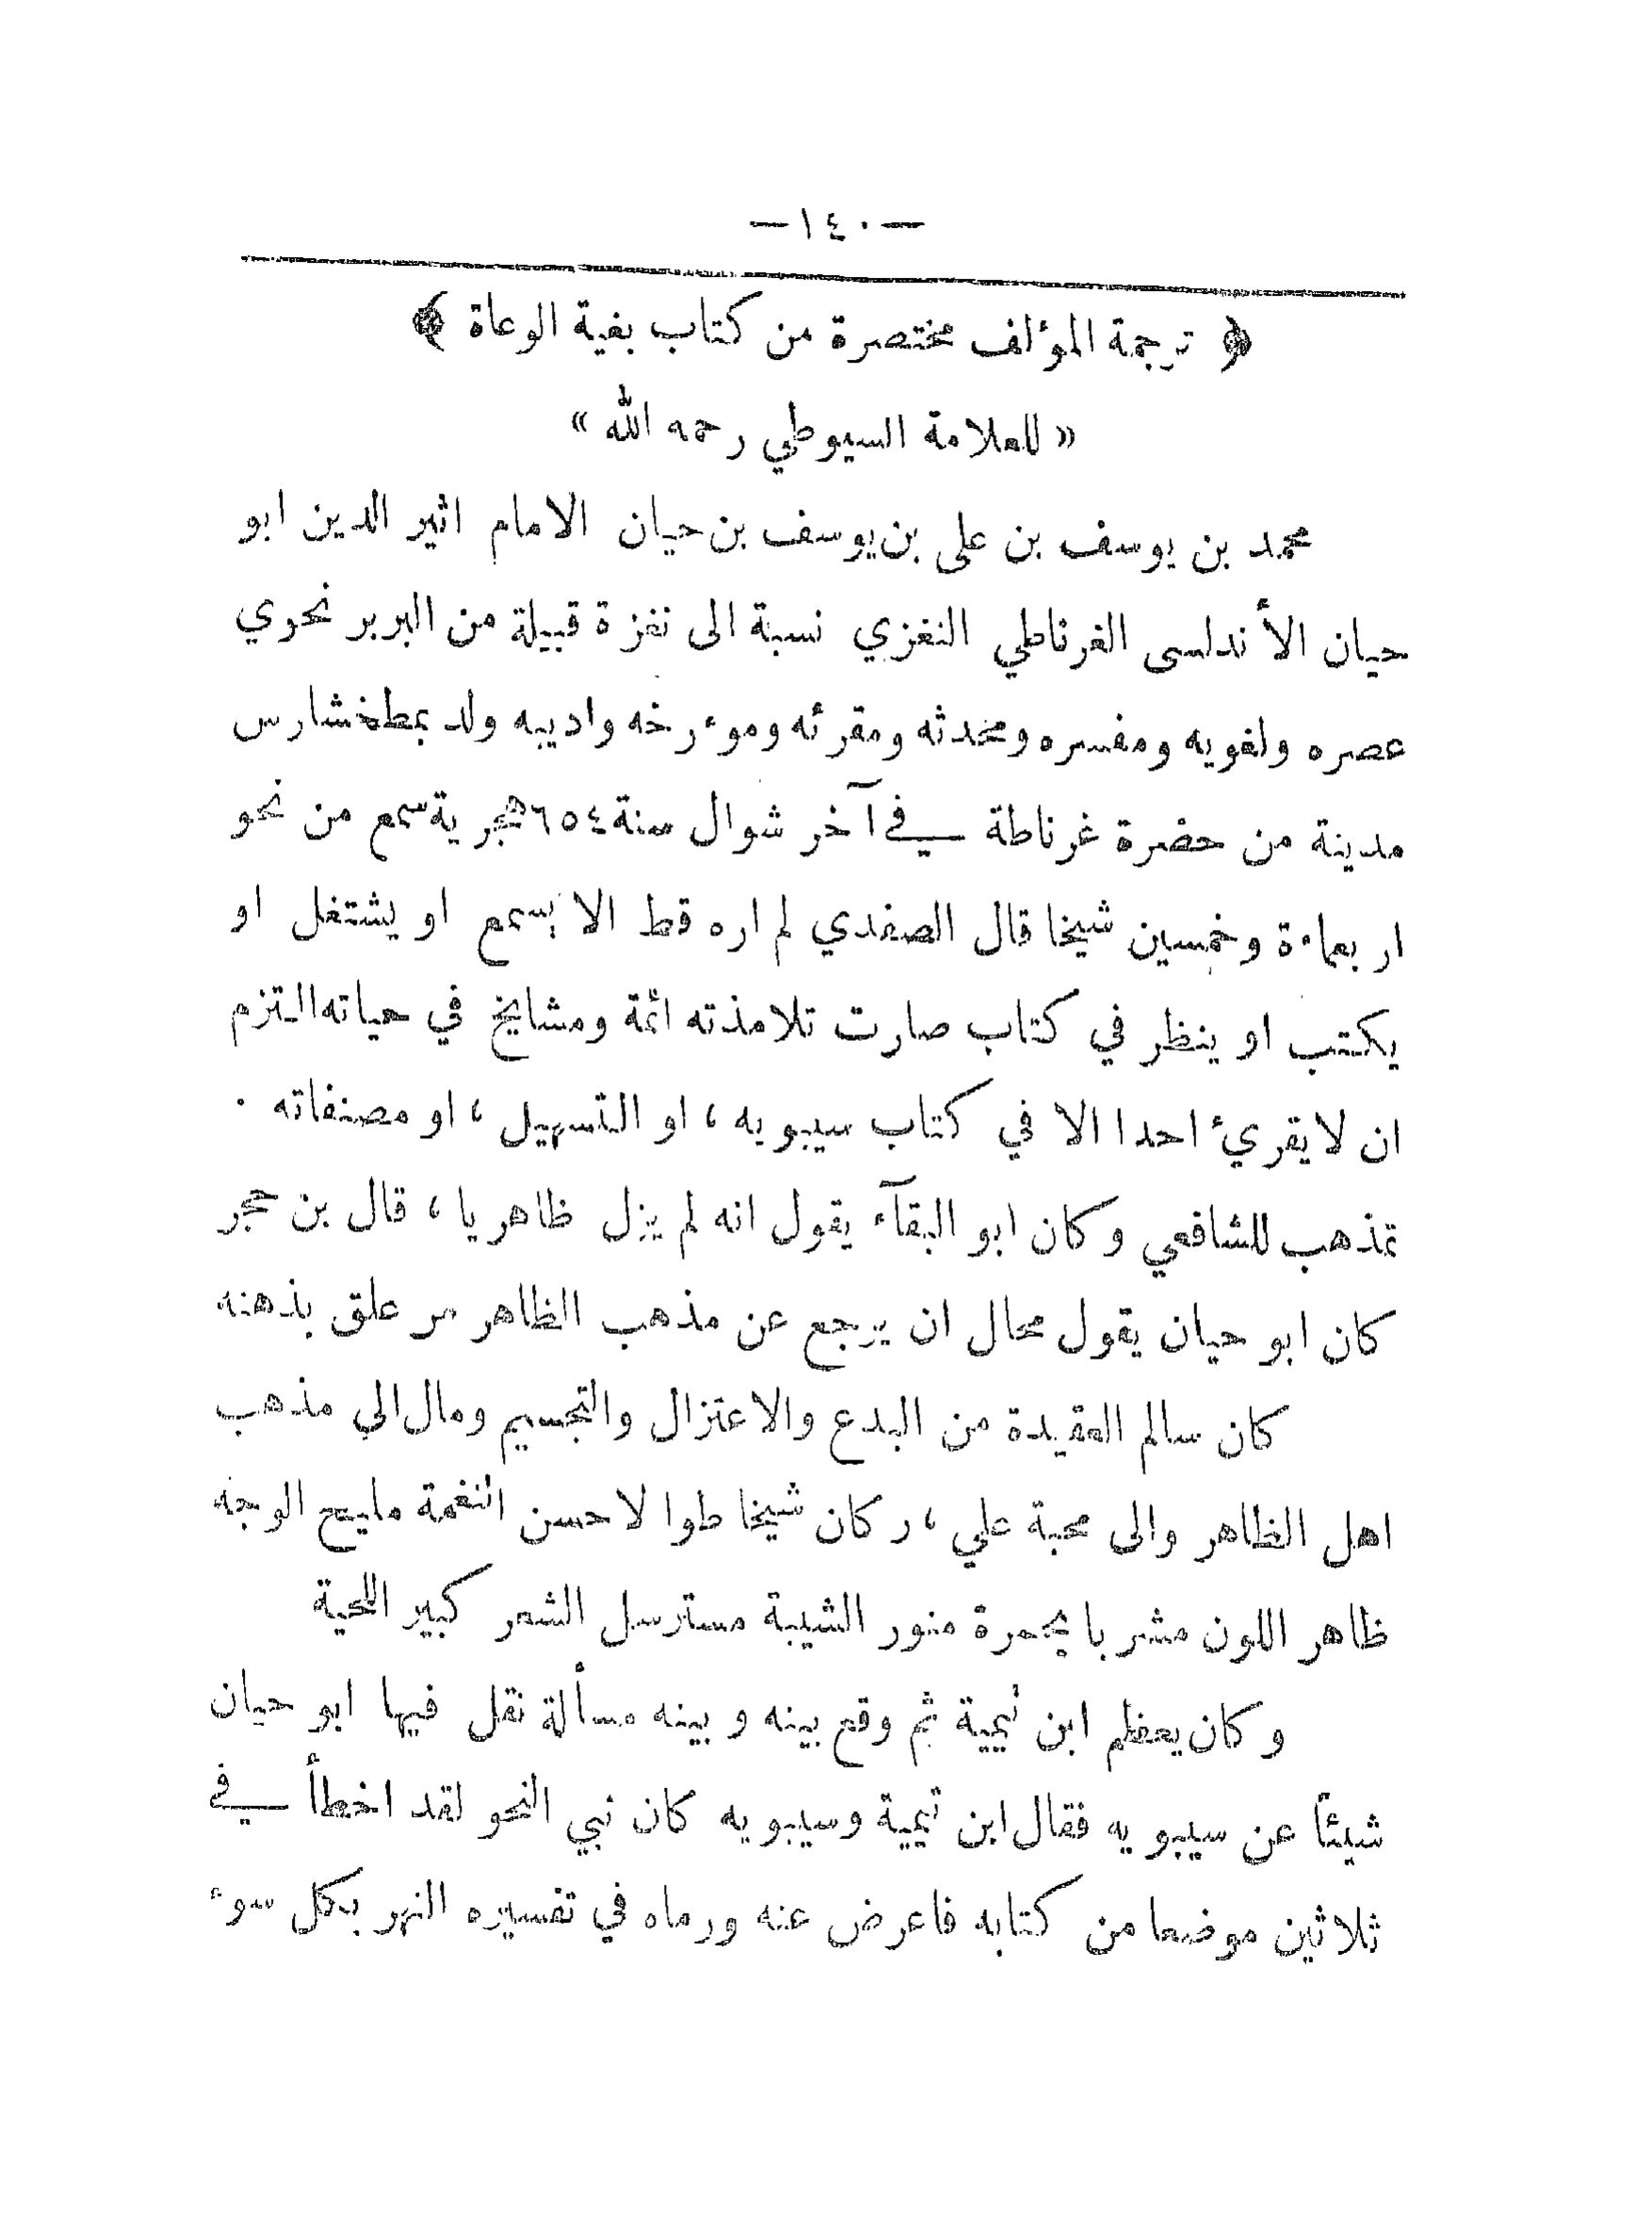 —١٤٠—
﴿ ترجمة المؤلف مختصرة من كتاب بغية الوعاة ﴾
« للعلامة السيوطي رحمه الله »
محمد بن يوسف بن على بن يوسف بن حيان الامام اثير الدين ابو
حيان الأندلسى الغرناطي النفزي نسبة الى نفزة قبيلة من البربر نحوي
عصره ولغويه ومفسره ومحدثه ومقرئه وموءرخه واديبه ولد بمطخشارس
مدينة من حضرة غرناطة في آخر شوال سنة ٦٥٤ هجرية سمع من نحو
اربعماءة وخمسين شيخا قال الصفدي لم اره قط الا يسمع او يشتغل او
يكتب او ينظر في كتاب صارت تلامذته ائمة ومشايخ في حياته التزم
ان لا يقريء احدا الا في كتاب سيبويه ، او التسهيل ، او مصنفاته .
تمذهب للشافعي وكان ابو البقآء يقول انه لم يزل ظاهريا ، قال بن حجر
كان ابو حيان يقول محال ان يرجع عن مذهب الظاهر من علق بذهنه
كان سالم العقيدة من البدع والاعتزال والتجسيم ومال الي مذهب
اهل الظاهر والى محبة علي ، وكان شيخا طوالا حسن النغمة مليح الوجه
ظاهر اللون مشربا بحمرة منور الشيبة مسترسل الشعر كبير اللحية
وكان يعظم ابن تيمية ثم وقع بينه وبينه مسألة نقل فيها ابو حيان
شيئاً عن سيبويه فقال ابن تيمية وسيبويه كان نبي النحو لقد اخطأ في
ثلاثين موضعا من كتابه فاعرض عنه ورماه في تفسيره النهر بكل سوء